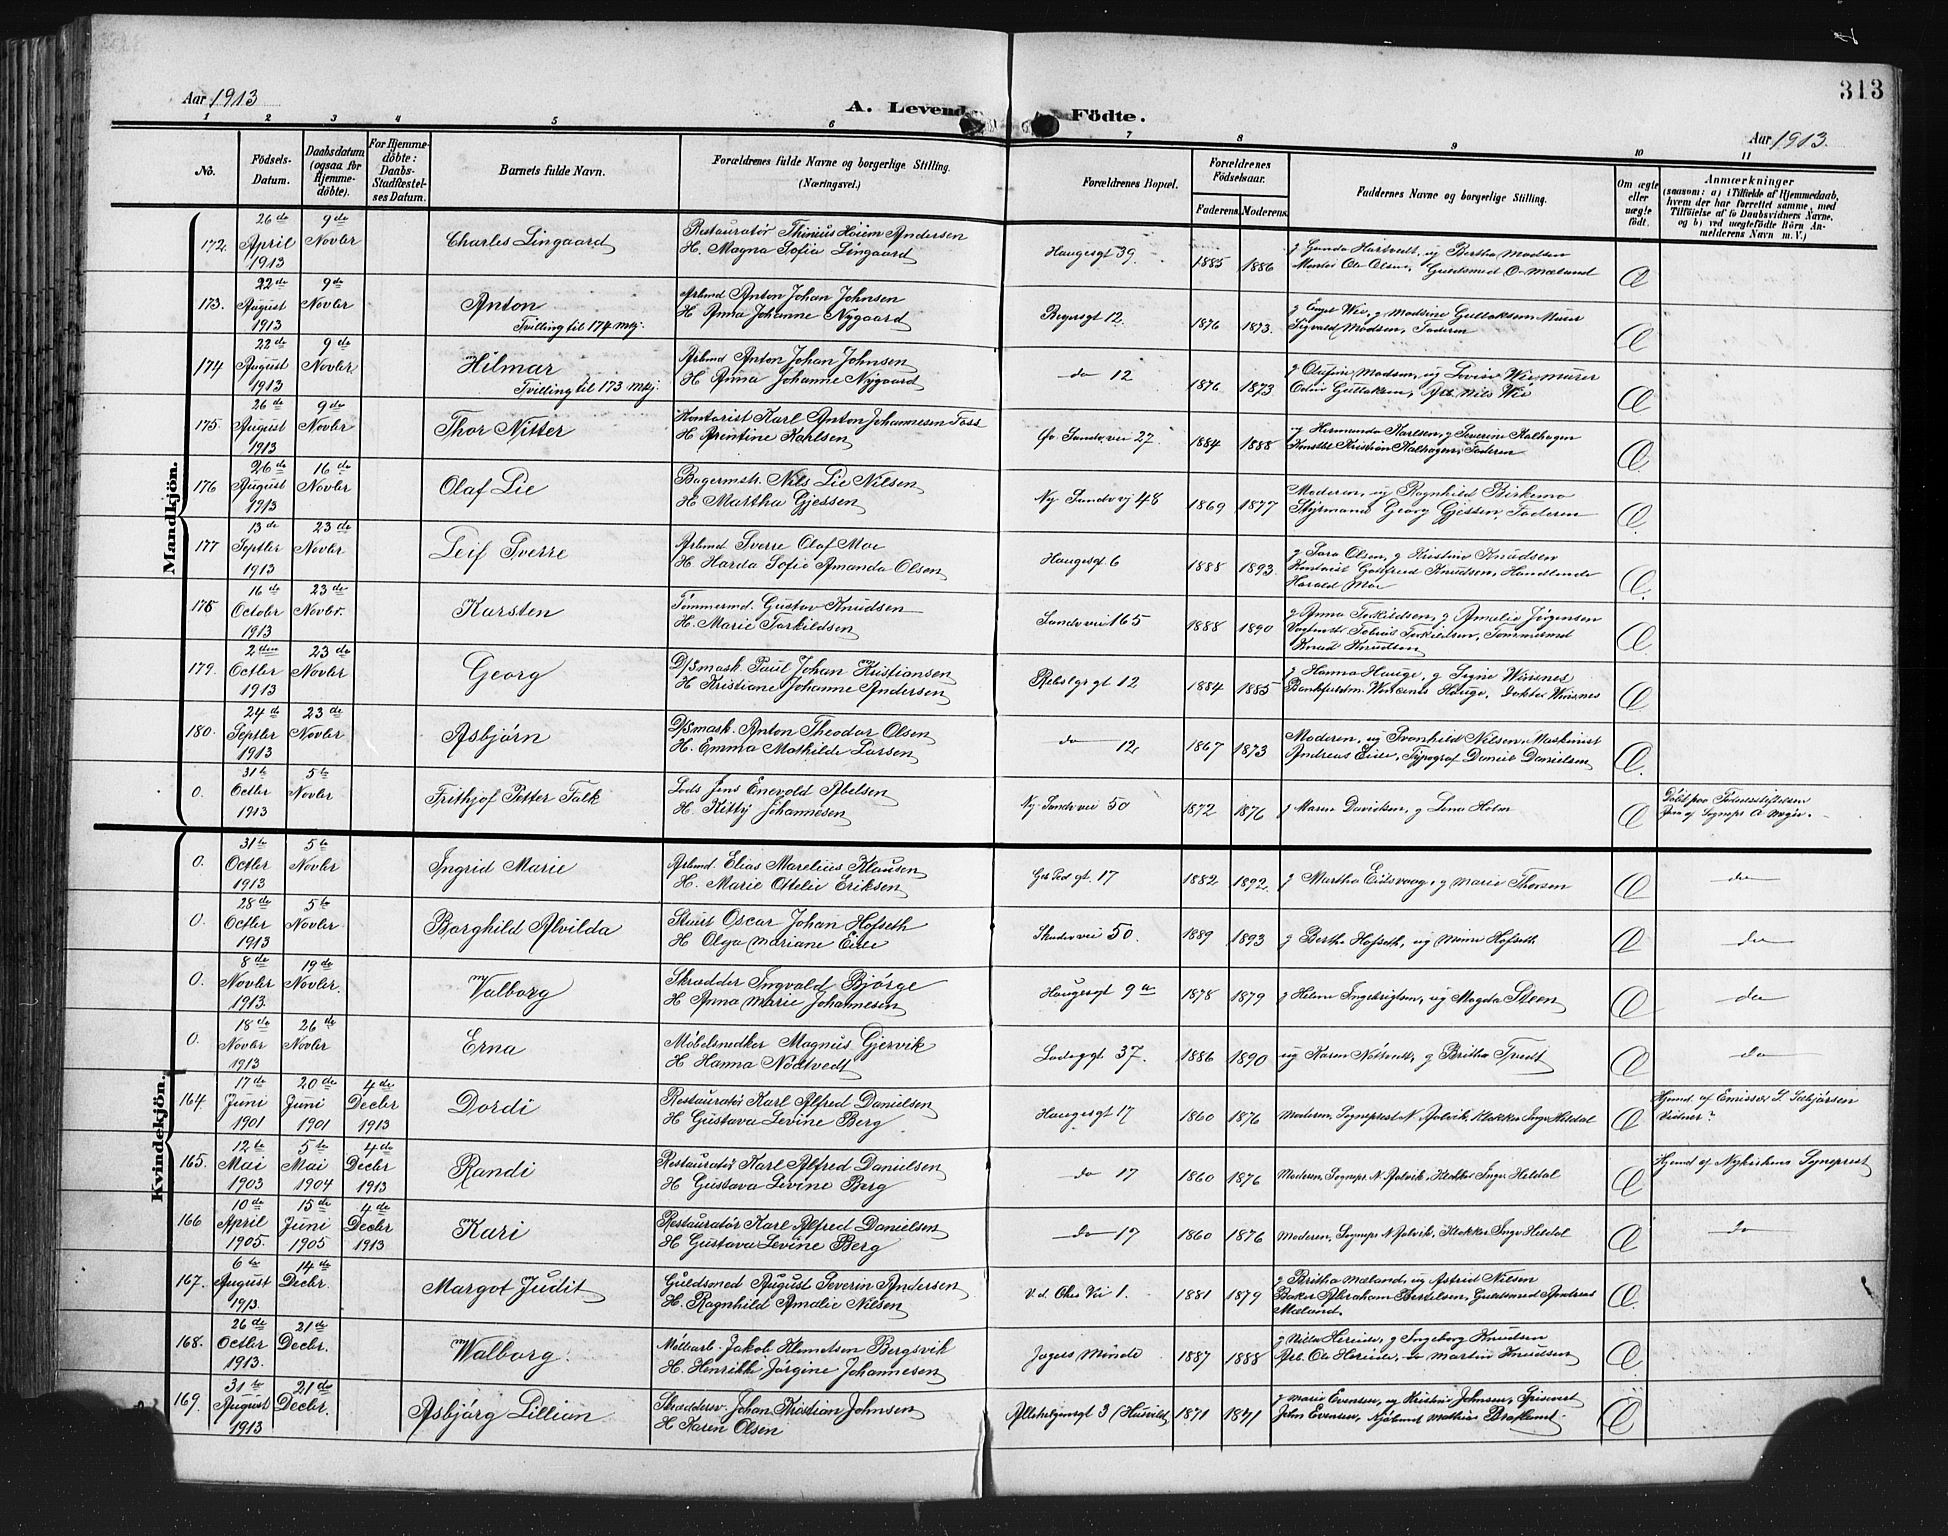 313
Aar 1913
A. Levende Födte.
Aar 1913.
1 2 3 4 5 6 7 8 9 10 11
No.
Födsels-
Datum.
Daabsdatum
(ogsaa for
Hjemme-
döbte).
For Hjemme-
döbte:
Daabs-
Stadfæstel-
ses Datum.
Barnets fulde Navn.
Forældrenes fulde Navne og borgerlige Stilling.
(Næringsvei.)
Forældrenes Bopæl.
Forældrenes
Födselsaar.
Faderens. Moderens.
Faddernes Navne og borgerlige Stilling.
Om ægte
eller
uægte
födt.
Anmærkninger
(saasom: a) i Tilfælde af Hjemmedaab,
hvem der har forrettet samme, med
Tilföielse af to Daabsvidners Navne,
og b) ved uægtefödte Börn An-
melderens Navn m. V.)
Mandkjön.
172. 26de April 1913 9de Novbr Charles Lingaard
Restauratør Thinius Hoiem Andersen
H. Magna Sofie Lingaard
Haugesgt 39. 1885 1886
g Gunda Hartvedt, ug Bertha Madsen
Ole Olsen, Guldsmed O. Mæland
Æ
173. 22de August 1913 9de Novbr Anton
Tvilling til 174 mkj.
Arbmd Anton Johan Johnsen
H Anna Johanne Nygaard
12. 1876 1873.
g Enget Wie, g Madsine Gullaksen Murer
Sigvald Madsen, Faderen
Æ
174 22de August 1913 9de Novbr Hilmar
Tvilling til 173 mkj.
Arbmd Anton Johan Johnsen
H Anna Johanne Nygaard
do 12 1876 1873
g Olufine Madsen, ug Lovise Wie murer
Odin Gullaksen, Nils Wie
Æ
175. 26de August 1913 9de Novbr Thor Nitter
Kontorist Karl Anton Johannesen Foss
H Arentine Karlsen
Øv Sandv. vei 27 1884 1888
g Hermanda Karlsen, g Severine Kalhagen
Kristian Kalhagen, Faderen
Æ
176 26de August 1913 16de Novbr Olaf Lie
Bagermstr. Nils Lie Nilsen
H Martha Gjessen
Ny Sandv vj 48 1869 1877
Moderen, ug Ragnhild Birkemo
Styrmand Georg Gjessen, Faderen
Æ
177 13de Septbr 1913 23de Novbr Leif Sverre
Arbmd Sverre Olaf Moe
H. Harda Sofie Amanda Olsen
Haugesgt 6 1888 1893.
g Sara Olsen, g Kristine Knudsen
Kontorist Gottfred Knudsen, Handlende
Harald Moe
Æ
178 16de October 1913 23de Novbr. Karsten
Tømmermd. Gustav Knudsen
H. Marie Torkildsen
Sandv vei 165 1888 1890
g Anna Torkildsen, g Amalie Jørgensen
Tobias Torkildsen, Tømmermd
Knud Knudsen
Æ
179. 2den Octbr 1913 23de Novbr Georg
D/Smask Paul Johan Kristiansen
H Kristiane Johanne Andersen
Rebslgr gt 12 1884 1885
g Hanna Hauge, g Signe Wiisnes
Hauge, Doktor Wiisnes
Æ
180. 24de Septbr 1913 23de Novbr Asbjørn
D/Smask. Anton Theodor Olsen
H. Emma Mathilde Larsen
do 12, 1867 1873
Moderen, ug Svanhild Nilsen, Maskinist
Andreas Eide, Typograf Daniel Danielsen
Æ
0. 31te Octbr 1913 5te Novbr Frithjof Petter Falk
Lods Jens Enevold Abelsen
H. Kitty Johannesen
Ny Sandv vei 50 1872 1876
g Maren Davidsen, g Lena Holm
Æ
Døbt paa Fødselsstiftelsen
af Sognepr
Kvindekjön.
0. 31te Octbr 1913 5te Novbr Ingrid Marie
Arbmd. Elias Marelius Klausen
H. Marie Ottelie Eriksen
gt. 17 1882 1892.
g Martha Eidsvaag, g Marie Thorsen
Æ do
0. 28de Octbr 1913 5te Novbr Borghild Alvilda
Stuert Oscar Johan Hofseth
H Olga Mariane Eide
50. 1889 1893
g Bertha Hofseth, ug Mimi Hofseth
Æ do
0. 8de Novbr 1913. 19de Novbr. Valborg
Skrædder Ingvald Bjørge
H Anna Marie Johannesen
Haugesgt 9a 1878 1879
g Helene Ingebrigtsen, ug Magda Steen
Æ do
0. 18de Novbr 1913 26de Novbr Erna
Møbelsnedker Magnus Gjervik
H Hanna Nødtvedt
37. 1886 1890
ug Karen Nøtvedt, g Britha Tvedt
Æ do
164. 17de Juni 1901 20de Juni 1901 4de Decbr 1913 Dordi
Restauratør Karl Alfred Danielsen
H Gustava Levine Berg
Haugesgt 17 1860 1876
Moderen, Sogneprest N. Aalvik, Klokker Inge Heldal
Æ
Hjmd. af Emissær S Sæbjørsen
Vidner?
165. 12te Mai 1903 5te Mai 1904 4de Decbr 1913 Randi
Restauratør Karl Alfred Danielsen
H Gustava Levine Berg
do 17 1860 1876
Moderen, Sognepr. N. Aalvik, Klokker Inge Heldal
Æ
Hjemd af Nykirkens Sognprest
166 10de April 1905. 15de Juni 1905 4de Decbr 1913 Kari
Restauratør Karl Alfred Danielsen
H Gustava Levine Berg
do 17 1860 1876
Moderen, Sognepr N Aalvik, Klokker Inge Heldal
Æ do
167. 6te August 1913. 14de Decbr. Margot Judit
Guldsmed August Severin Andersen
H. Ragnhild Amalie Nilsen
Vei 1. 1881 1879
g Britha Mæland, ug Astrid Nilsen
Baker Abraham Bertelsen, Guldsmed Andreas
Mæland.
Æ.
168. 26de Octbr 1913. 21de Decbr. Valborg.
Møllearb. Jakob Klemetsen Bergsvik
H. Henrikke Jørgine Johannesen
Jægers Minde 1887 1888
g Nilla Hereide, g Ingeborg Knudsen
Arb. Ole Hereide, do Martin Knudsen
Æ
169. 31te August 1913 21de Decbr. Asbjørg Lillian
Skræddersv. Johan Kristian Johnsen
H Karen Olsen
Allehelgensgt 3 1871 1871
g Marie Evensen, ug Kristine Johnsen,
John Evensen, Mathias
Æ